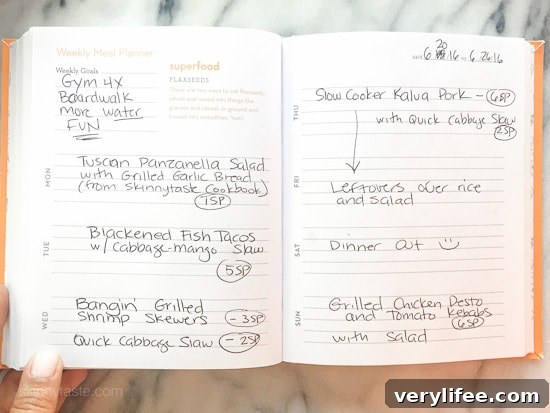 Weekly Meal Planner
Weekly Goals
Gym 4x
Boardwalk
more water
FUN
superfood
FLAXSEEDS
There are two ways to eat flaxseeds,
MON
Tuscan Panzanella Salad
with Grilled Garlic Bread
(from Skinnytaste Cookbook)
7SP
TUE
Blackened Fish Tacos
w/ Cabbage-mango Slaw
5SP
WED
Bangin' Grilled
Shrimp Skewers - 3SP
Quick Cabbage Slaw - 2SP
DATE 6. 20 .16 to 6.26.16
THU
Slow Cooker Kalua Pork - 6SP
with Quick Cabbage Slaw
2SP
FRI
Leftovers over rice
and salad
SAT
Dinner out
SUN
Grilled Chicken Pesto
and Tomato Kebabs
6SP
with Salad
skinnytaste.com
verylifee.com